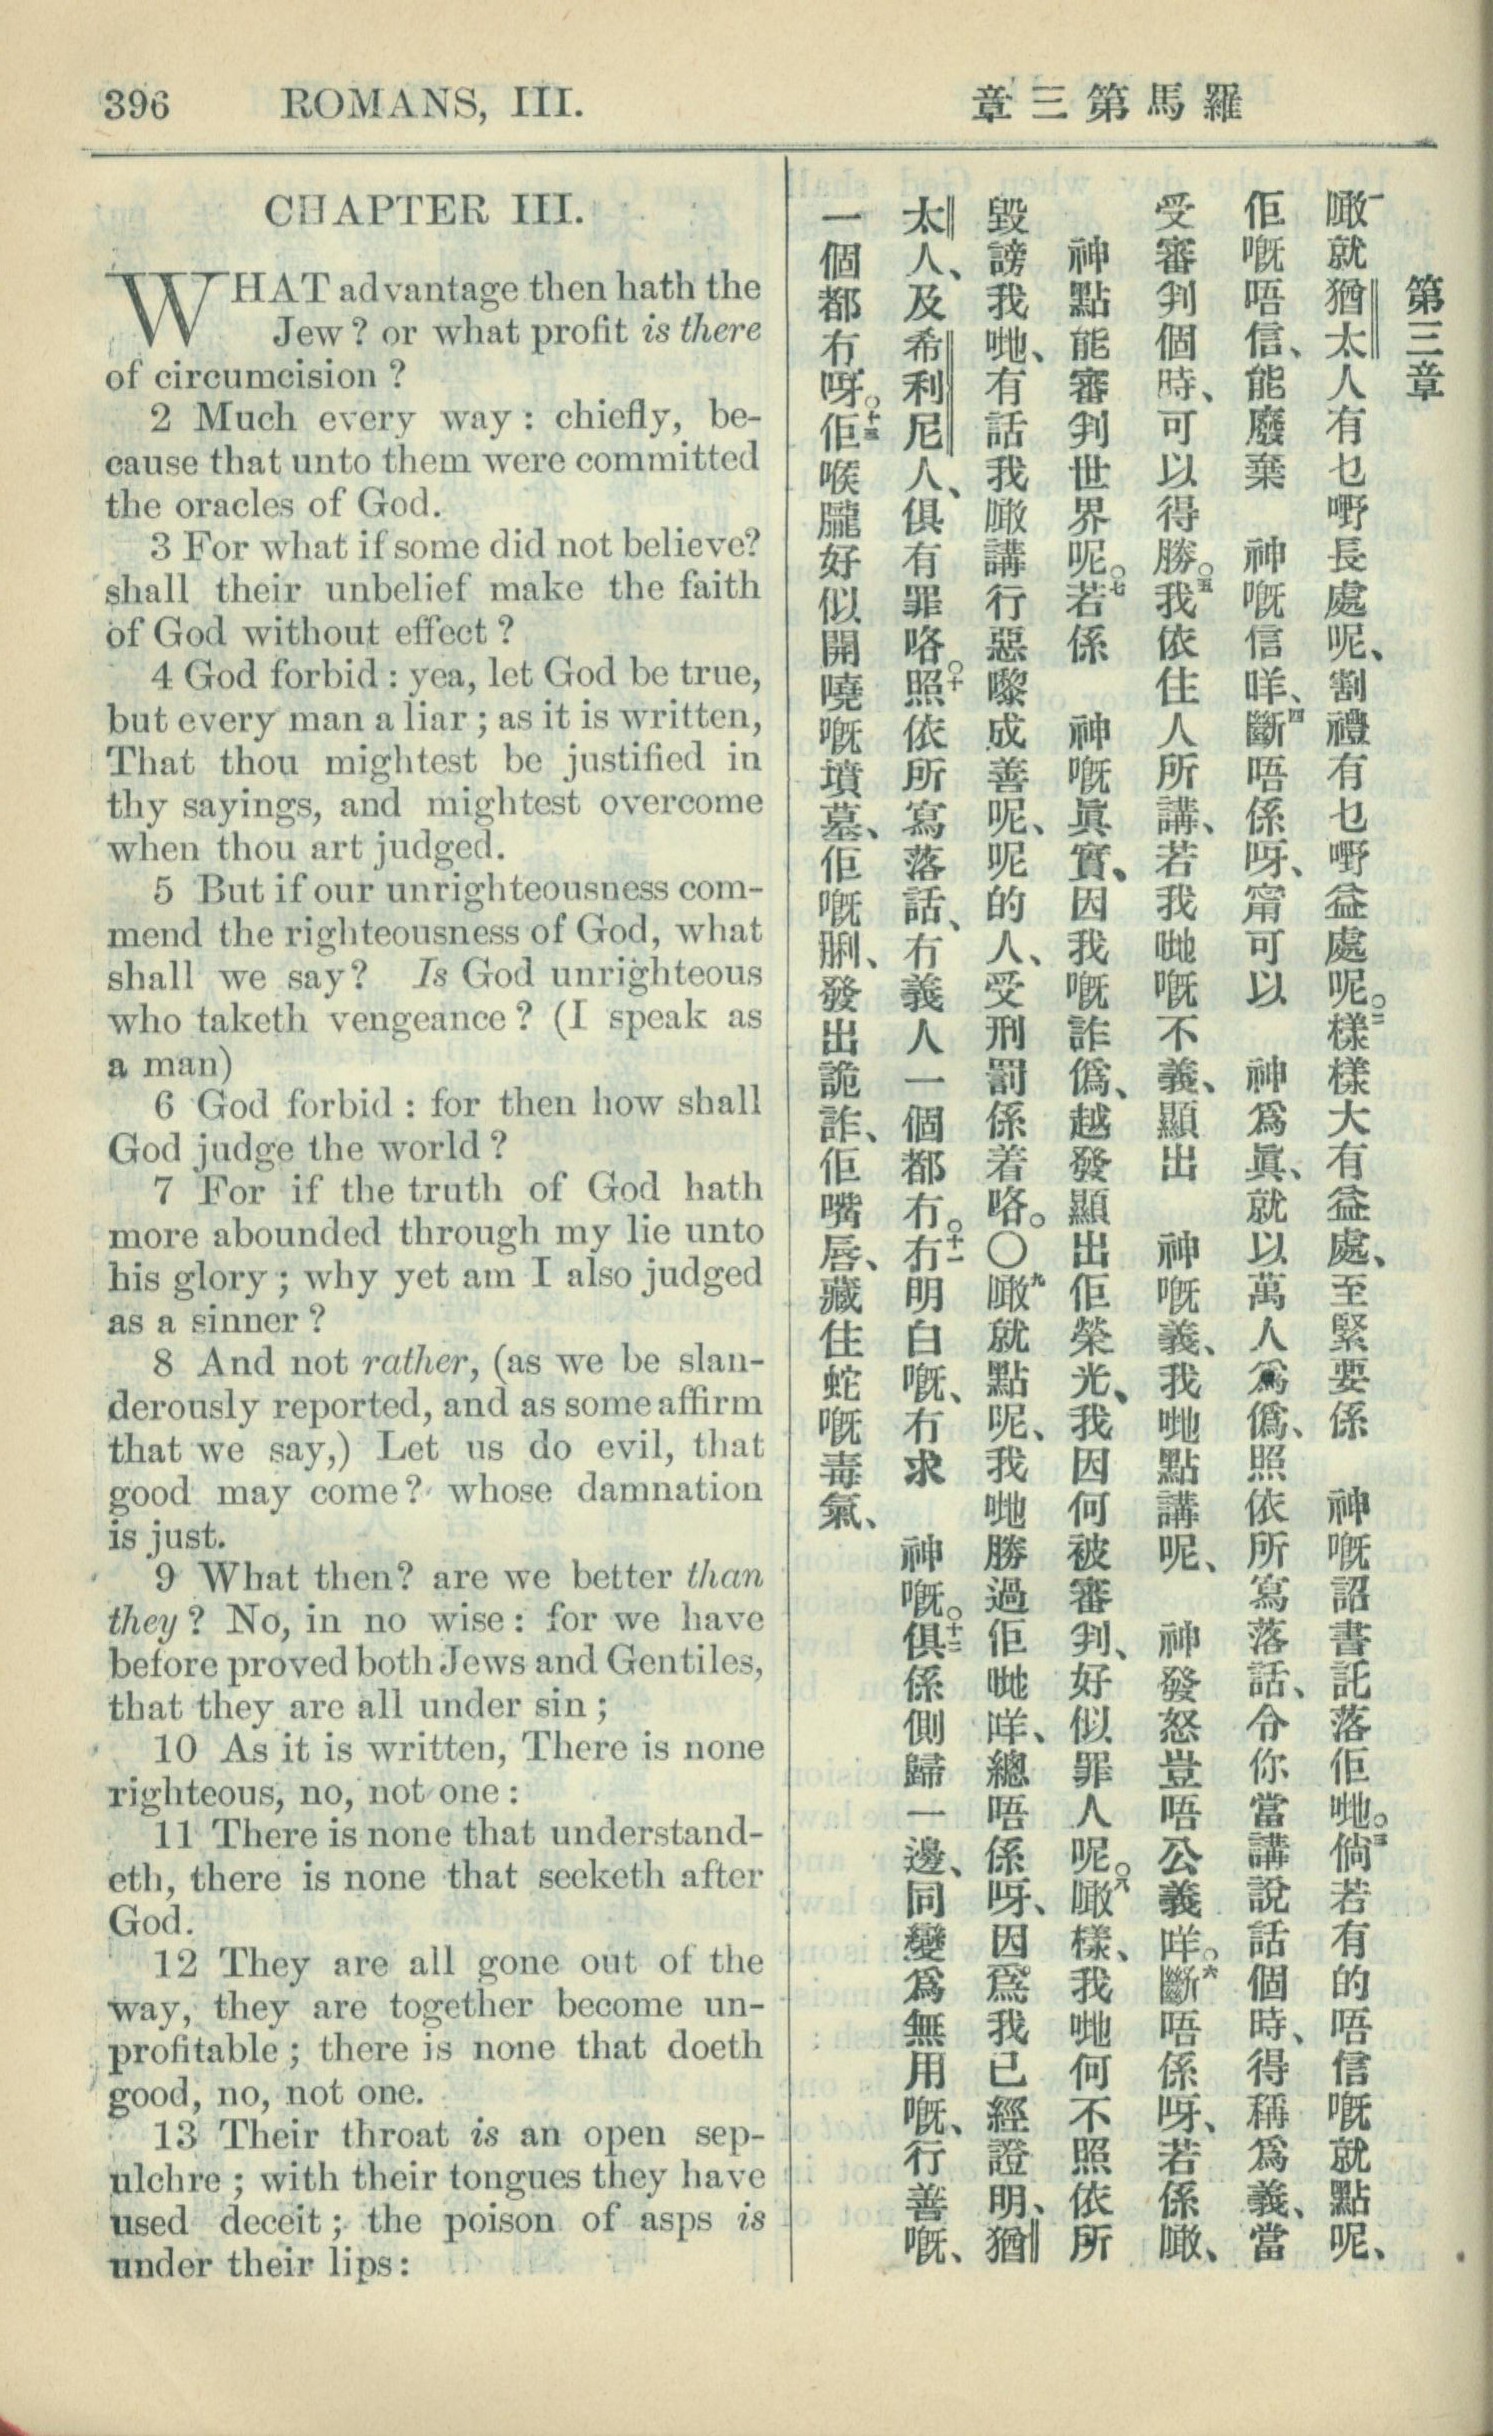 396 ROMANS, III.
章三第馬羅
CHAPTER III.
WHAT advantage then hath the
Jew? or what profit is there
of circumcision?
2 Much every way: chiefly, be-
cause that unto them were committed
the oracles of God.
3 For what if some did not believe?
shall their unbelief make the faith
of God without effect?
4 God forbid: yea, let God be true,
but every man a liar; as it is written,
That thou mightest be justified in
thy sayings, and mightest overcome
when thou art judged.
5 But if our unrighteousness com-
mend the righteousness of God, what
shall we say? Is God unrighteous
who taketh vengeance? (I speak as
a man)
6 God forbid: for then how shall
God judge the world?
7 For if the truth of God hath
more abounded through my lie unto
his glory; why yet am I also judged
as a sinner?
8 And not rather, (as we be slan-
derously reported, and as some affirm
that we say,) Let us do evil, that
good may come? whose damnation
is just.
9 What then? are we better than
they? No, in no wise: for we have
before proved both Jews and Gentiles,
that they are all under sin;
10 As it is written, There is none
righteous, no, not one:
11 There is none that understand-
eth, there is none that seeketh after
God.
12 They are all gone out of the
way, they are together become un-
profitable; there is none that doeth
good, no, not one.
13 Their throat is an open sep-
ulchre; with their tongues they have
used deceit; the poison of asps is
under their lips:
第三章
一噉就猶太人有乜嘢長處呢、割禮有乜嘢益處呢。二樣樣大有益處、至緊要係 神嘅詔書託落佢哋。三倘若有的唔信嘅就點呢、
佢嘅唔信、能廢棄 神嘅信咩、四斷唔係呀、甯可以 神爲眞、就以萬人爲僞、照依所寫落話、令你當講說話個時、得稱爲義、當
受審判個時、可以得勝。五我依住人所講、若我哋嘅不義、顯出 神嘅義、我哋點講呢、 神發怒豈唔公義咩。六斷唔係呀、若係噉、
神點能審判世界呢。七若係 神嘅眞實、因我嘅詐僞、越發顯出佢榮光、我因何被審判、好似罪人呢。八噉樣、我哋何不照依所
毀謗我哋、有話我噉講行惡嚟成善呢、呢的人、受刑罰係着咯。〇九噉就點呢、我哋勝過佢哋咩、總唔係呀、因爲我已經證明、猶
太人、及希利尼人、俱有罪咯。十照依所寫落話、冇義人一個都冇。十一冇明白嘅、冇求 神嘅。十二俱係側歸一邊、同變爲無用嘅、行善嘅、
一個都冇呀。十三佢喉嚨好似開嘵嘅墳墓、佢嘅脷、發出詭詐、佢嘴唇、藏住蛇嘅毒氣、